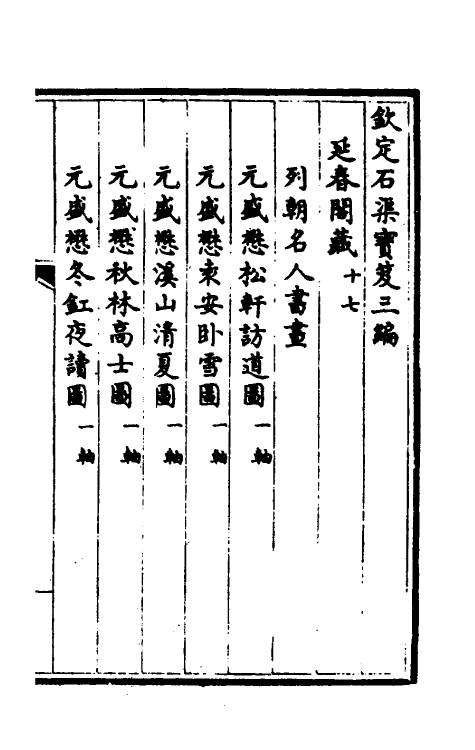 欽定石渠寶笈三編
延春閣藏十七
列朝名人書畫
元盛懋松軒訪道圖一軸
元盛懋東安卧雪圖一軸
元盛懋溪山清夏圖一軸
元盛懋秋林高士圖一軸
元盛懋冬釭夜讀圖一軸